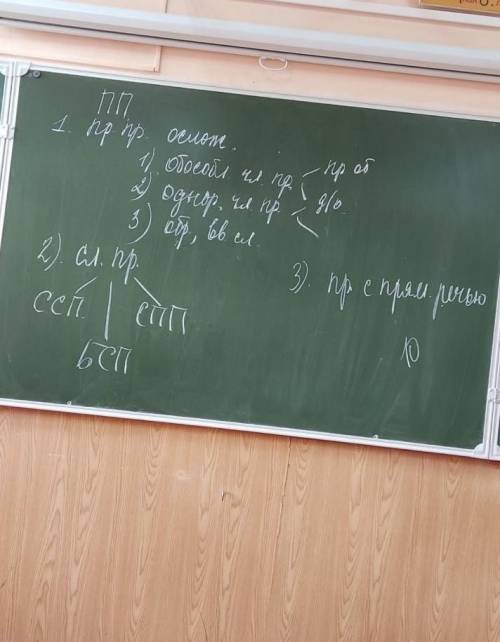 ПП
1. пр. пр. ослож.
1) обособл. чл. пр. пр об
2) однор. чл. пр. д/о
3) обр, вв сл.
2). сл. пр.
ССП СПП
БСП
3) пр. с прям. речью
10